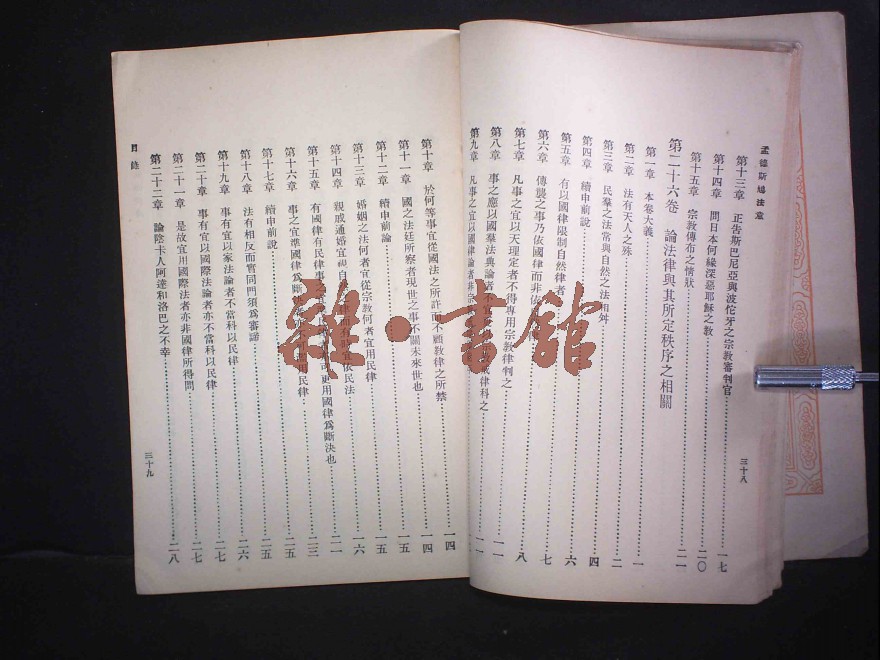 孟德斯鳩法意
第十三章 正告斯巴尼亞與波佗牙之宗教審判官 一七
第十四章 問日本何緣深惡耶穌之教 二〇
第十五章 宗教傳布之情狀 二一
第二十六卷 論法律與其所定秩序之相關
第一章 本卷大義 一
第二章 法有天人之殊 二
第三章 民羣之法當與自然之法相舛
第四章 續申前說 四
第五章 有以國律限制自然律者 六
第六章 傳襲之事乃依國律而非依 七
第七章 凡事之宜以天理定者不得專用宗教律判之 八
第八章 事之應以國羣法典論者不宜 律科之 一一
第九章 凡事之宜以國律論者非宗
三十八
第十章 於何等事宜從國法之所許而不顧教律之所禁 一四
第十一章 國之法廷所察者現世之事不關未來世也 一五
第十二章 續申前論 一五
第十三章 婚姻之法何者宜從宗教何者宜用民律 一六
第十四章 親戚通婚宜 自然 而有時宜依民法 二一
第十五章 有國律有民律事之 用國律爲斷決也 二三
第十六章 事之宜準國律爲斷決者 用民律 二五
第十七章 續申前說 二五
第十八章 法有相反而實同門須爲審諦 二六
第十九章 事有宜以家法論者不當科以民律 二七
第二十章 事有宜以國際法論者亦不當科以民律
第二十一章 是故宜用國際法者亦非國律所得問 二七
第二十二章 論陰卡人阿達和洛巴之不幸 二八
目錄
三十九
雜·書館